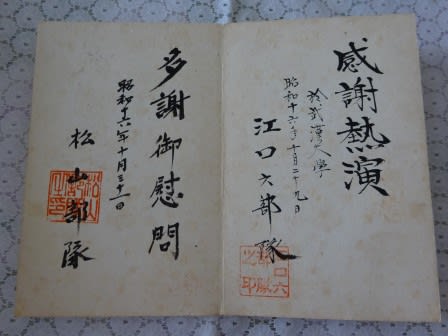 感謝熱演
於武漢大学
昭和十六年十月二十九日
江口六部隊
江口六部隊之印
多謝御慰問
昭和十六年十月三十一日
松山部隊